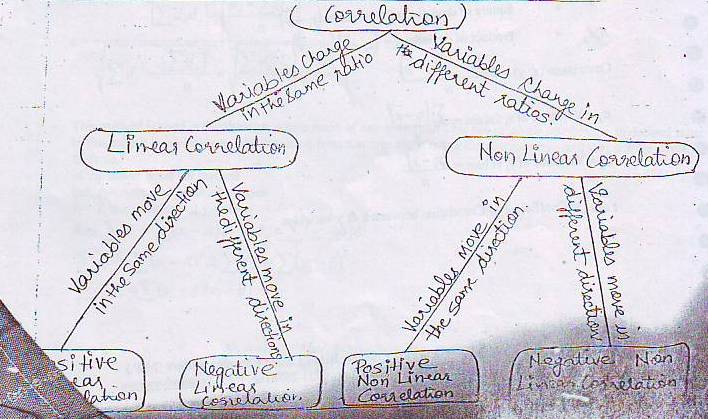 Correlation
Variables Change
in the Same ratio
Variables change in
the different ratios.
Linear Correlation
Non Linear Correlation
Variables move
in the Same direction
Variables move in
the different directions
Variables Move in
the same direction.
Variables move in
different direction
sitive
ear
lation
Negative
Linear
Correlation.
Positive
Non Linear
Correlation
Negative Non
Linear Correlation